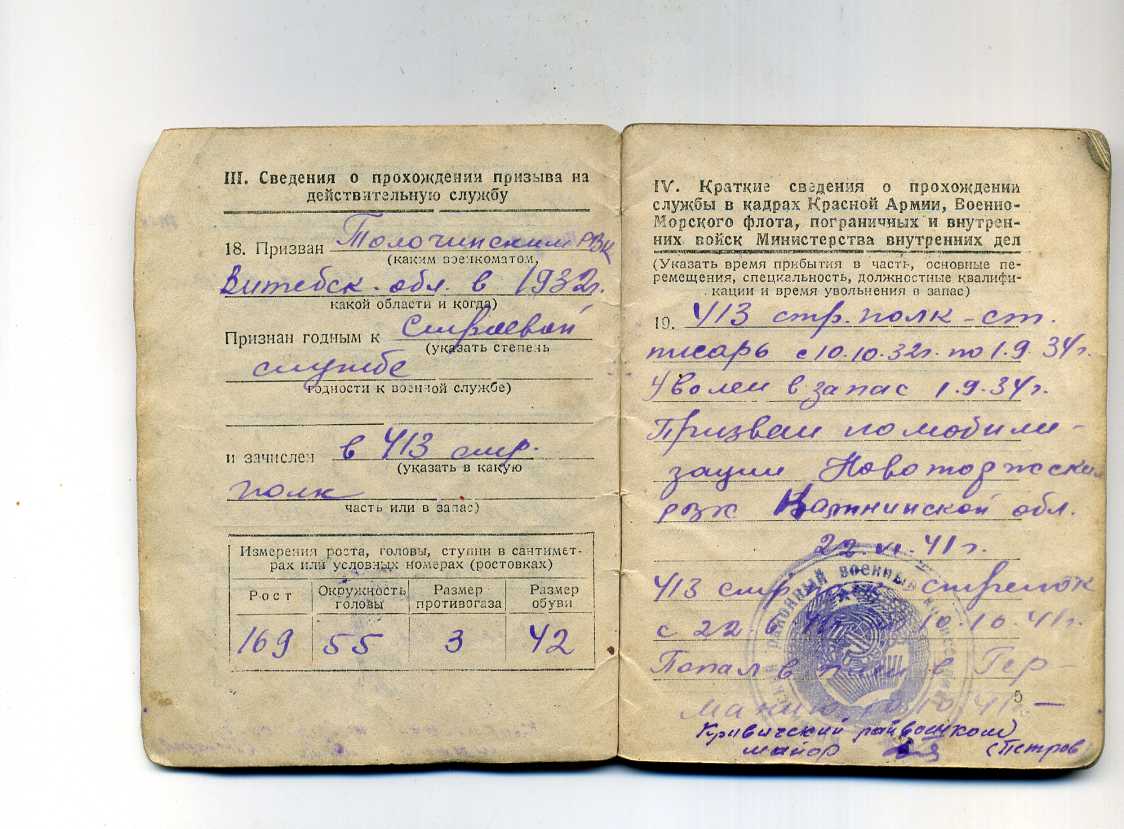 III. Сведения о прохождении призыва на
действительную службу
18. Призван Толочинским РВК
(каким военкоматом,
Витебск. обл. в 1932г.
какой области и когда)
Признан годным к строевой
(указать степень
службе
годности к военной службе)
и зачислен в 413 стр.
(указать в какую
полк
часть или в запас)
Измерения роста, головы, ступни в сантимет-
рах или условных номерах (ростовках)
Рост Окружность головы Размер противогаза Размер обуви
169 55 3 42
IV. Краткие сведения о прохождении
службы в кадрах Красной Армии, Военно-
Морского флота, пограничных и внутрен-
них войск Министерства внутренних дел
(Указать время прибытия в часть, основные пе-
ремещения, специальность, должностные квалифи-
кации и время увольнения в запас)
19. 413 стр. полк - ст.
писарь с 10.10.32г. по 1.9.34г.
Уволен в запас 1.9.34г.
Призван по мобили-
зации Новоторжским
рвк Калининской обл.
22.VI.41г.
413 стр. стрелок
с 22 41г. 10.10.41г.
Попал в плен в Гер-
манию 10.10.41 —
5
Кривичский райвоенком
майор (Петров
РАЙОННЫЙ ВОЕННЫЙ